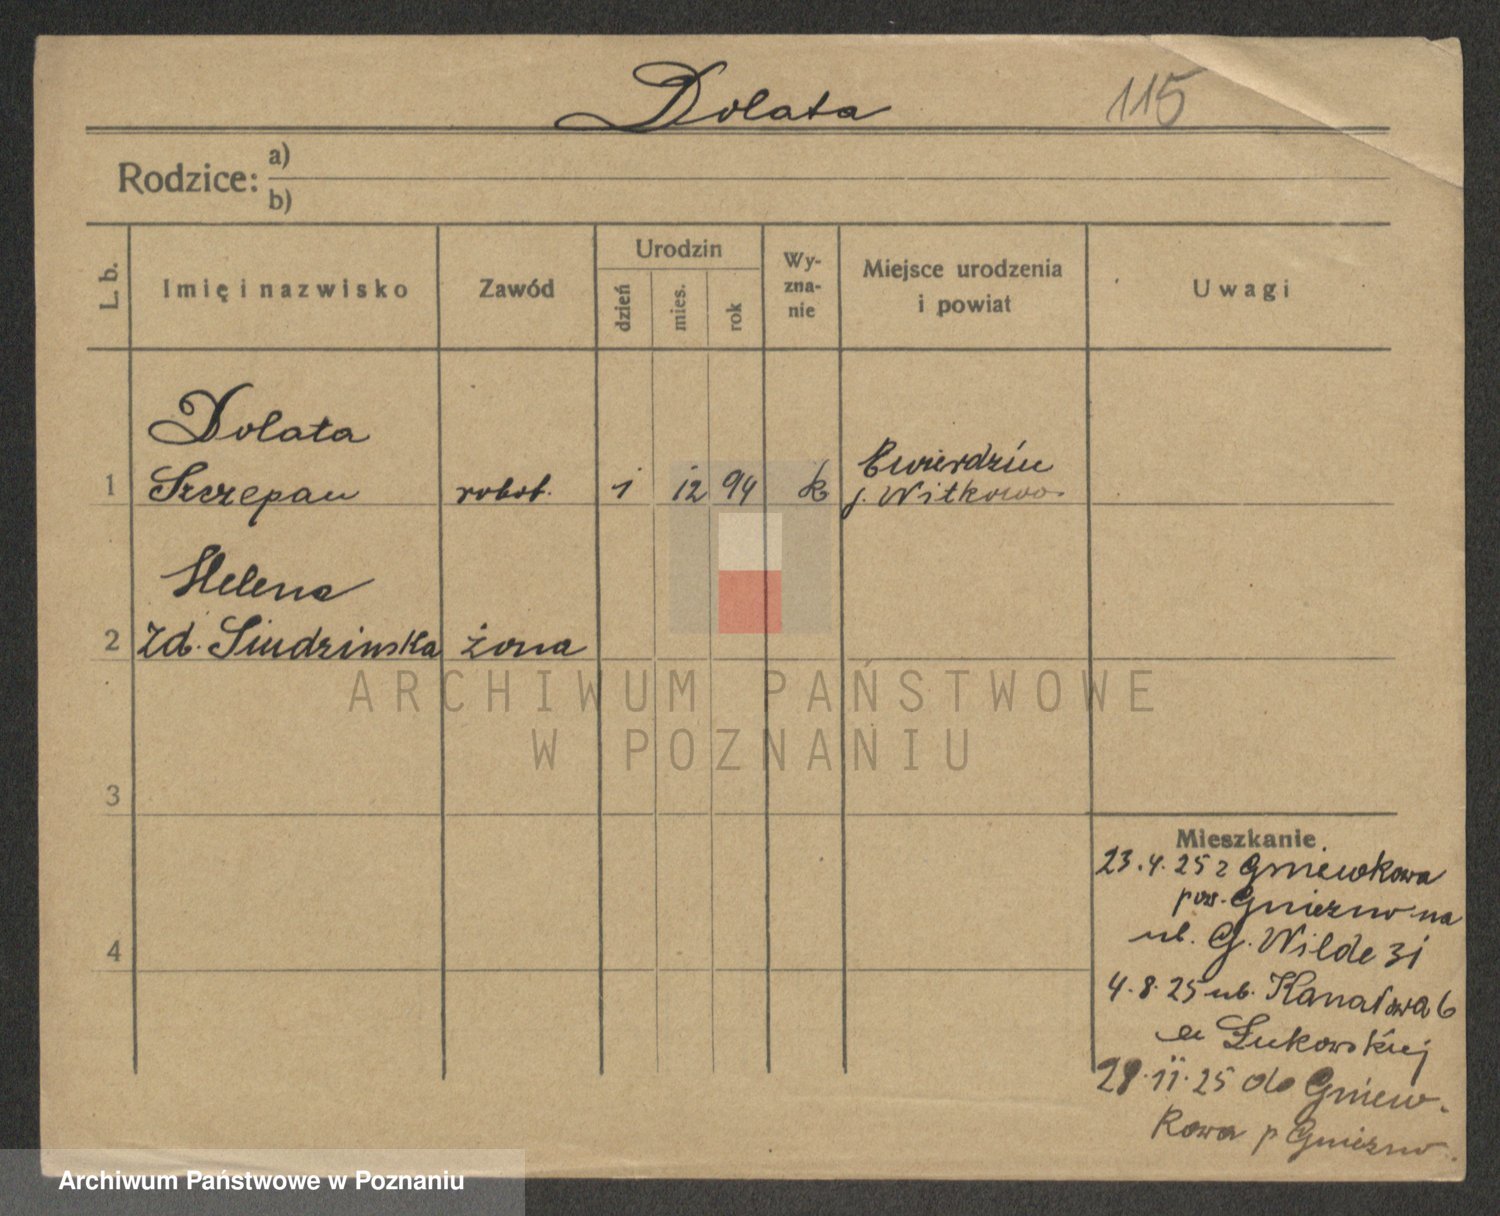 Dolata
115
Rodzice:
a)
b)
L. b.
Imię i nazwisko
Zawód
Urodzin
dzień
mies.
rok
Wy-
zna-
nie
Miejsce urodzenia
i powiat
Uwagi
Dolata
1 Szczepan robot. 1 12 94 k
j. Witkowo
Helena
2 Zd. Siudzinska żona
3
4
Mieszkanie
23.4.25 z Gniewkowa
pow. Gniezno na
ul. G. Wilde 31
4.8.25 ul. Kanałowa 6
u Łukowskiej
29.11.25 do Gniew-
kowa p Gniezno.
ARCHIWUM PAŃSTWOWE
W POZNANIU
Archiwum Państwowe w Poznaniu